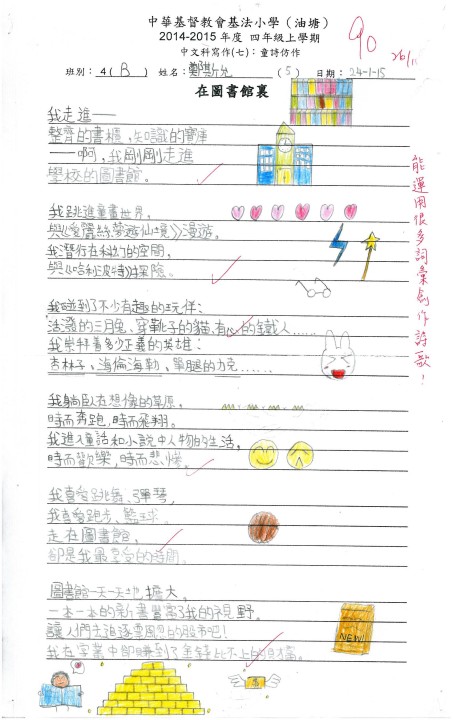 中華基督教會基法小學（油塘）
2014-2015 年度 四年級上學期
中文科寫作(七)：童詩仿作
90
26/11
班別：4(B) 姓名：鄭斯允 (5) 日期：24-1-15
在圖書館裏
我走進——
整齊的書櫃，知識的寶庫
——啊，我剛剛走進
學校的圖書館。
我跳進童書世界，
與《愛麗絲夢遊仙境》漫遊。
我潛行在科幻的空間，
與《哈利波特》探險。
我碰到了不少有趣的玩伴：
活潑的三月兔、穿靴子的貓、有心的鐵人……
我崇拜着多少正義的英雄：
杏林子、海倫海勒、單腿的力克……
我躺臥在想像的草原。
時而奔跑，時而飛翔。
我進入童話和小說中人物的生活。
時而歡樂，時而悲慘。
我喜愛跳舞、彈琴，
我喜愛跑步、籃球。
走在圖書館，
卻是我最享受的時間。
圖書館一天一天地擴大。
一本一本的新書豐富了我的視野。
讓人們去追逐雲周息的股市吧！
我在字業中即賺到了金錢比不上的財富。
NEW!
能運用很多詞彙創作詩歌！